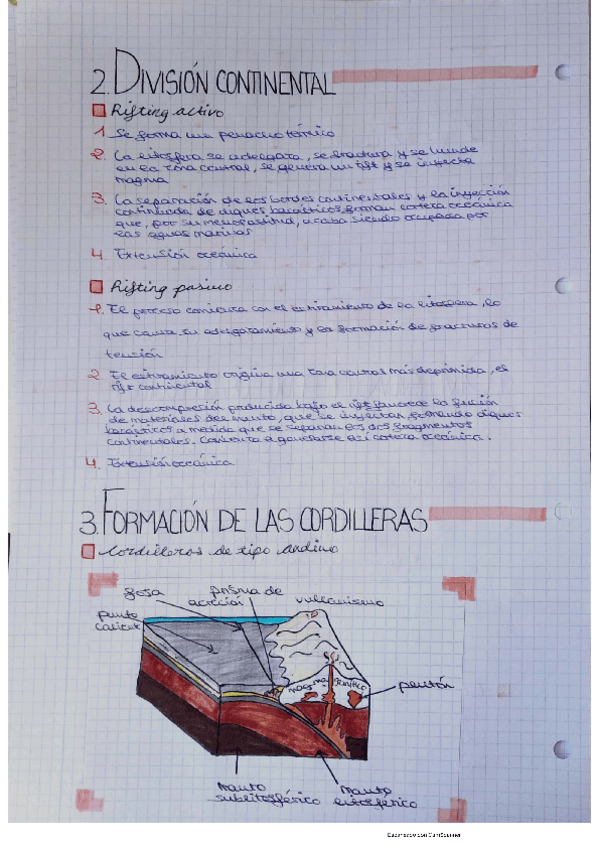 2. DIVISIÓN CONTINENTAL
Rifting activo
1. Se forma un penacho térmico
2. La litosfera se adelgaza, se fractura y se hunde
en la zona central, se genera un rift y se inyecta
magma
3. La separación de los bordes continentales y la inyección
continuada de diques basálticos forman corteza oceánica
que, por su menor altitud, acaba siendo ocupada por
las aguas marinas
4. Extensión oceánica
Rifting pasivo
1. El proceso comienza con el estiramiento de la litosfera, lo
que causa su adelgazamiento y la formación de fracturas de
tensión
2. El estiramiento origina una zona central más deprimida, el
rift continental
3. La descompresión producida bajo el rift favorece la fusión
de materiales del manto, que se inyectan formando diques
basálticos a medida que se separan los dos fragmentos
continentales. Comienza a generarse así corteza oceánica.
4. Extensión oceánica
3. FORMACIÓN DE LAS CORDILLERAS
Cordilleras de tipo andino
fosa
prisma de
acreción
vulcanismo
punto
caliente
magma
plutón
manto
sublitosférico
manto
litosférico
Escaneado con CamScanner